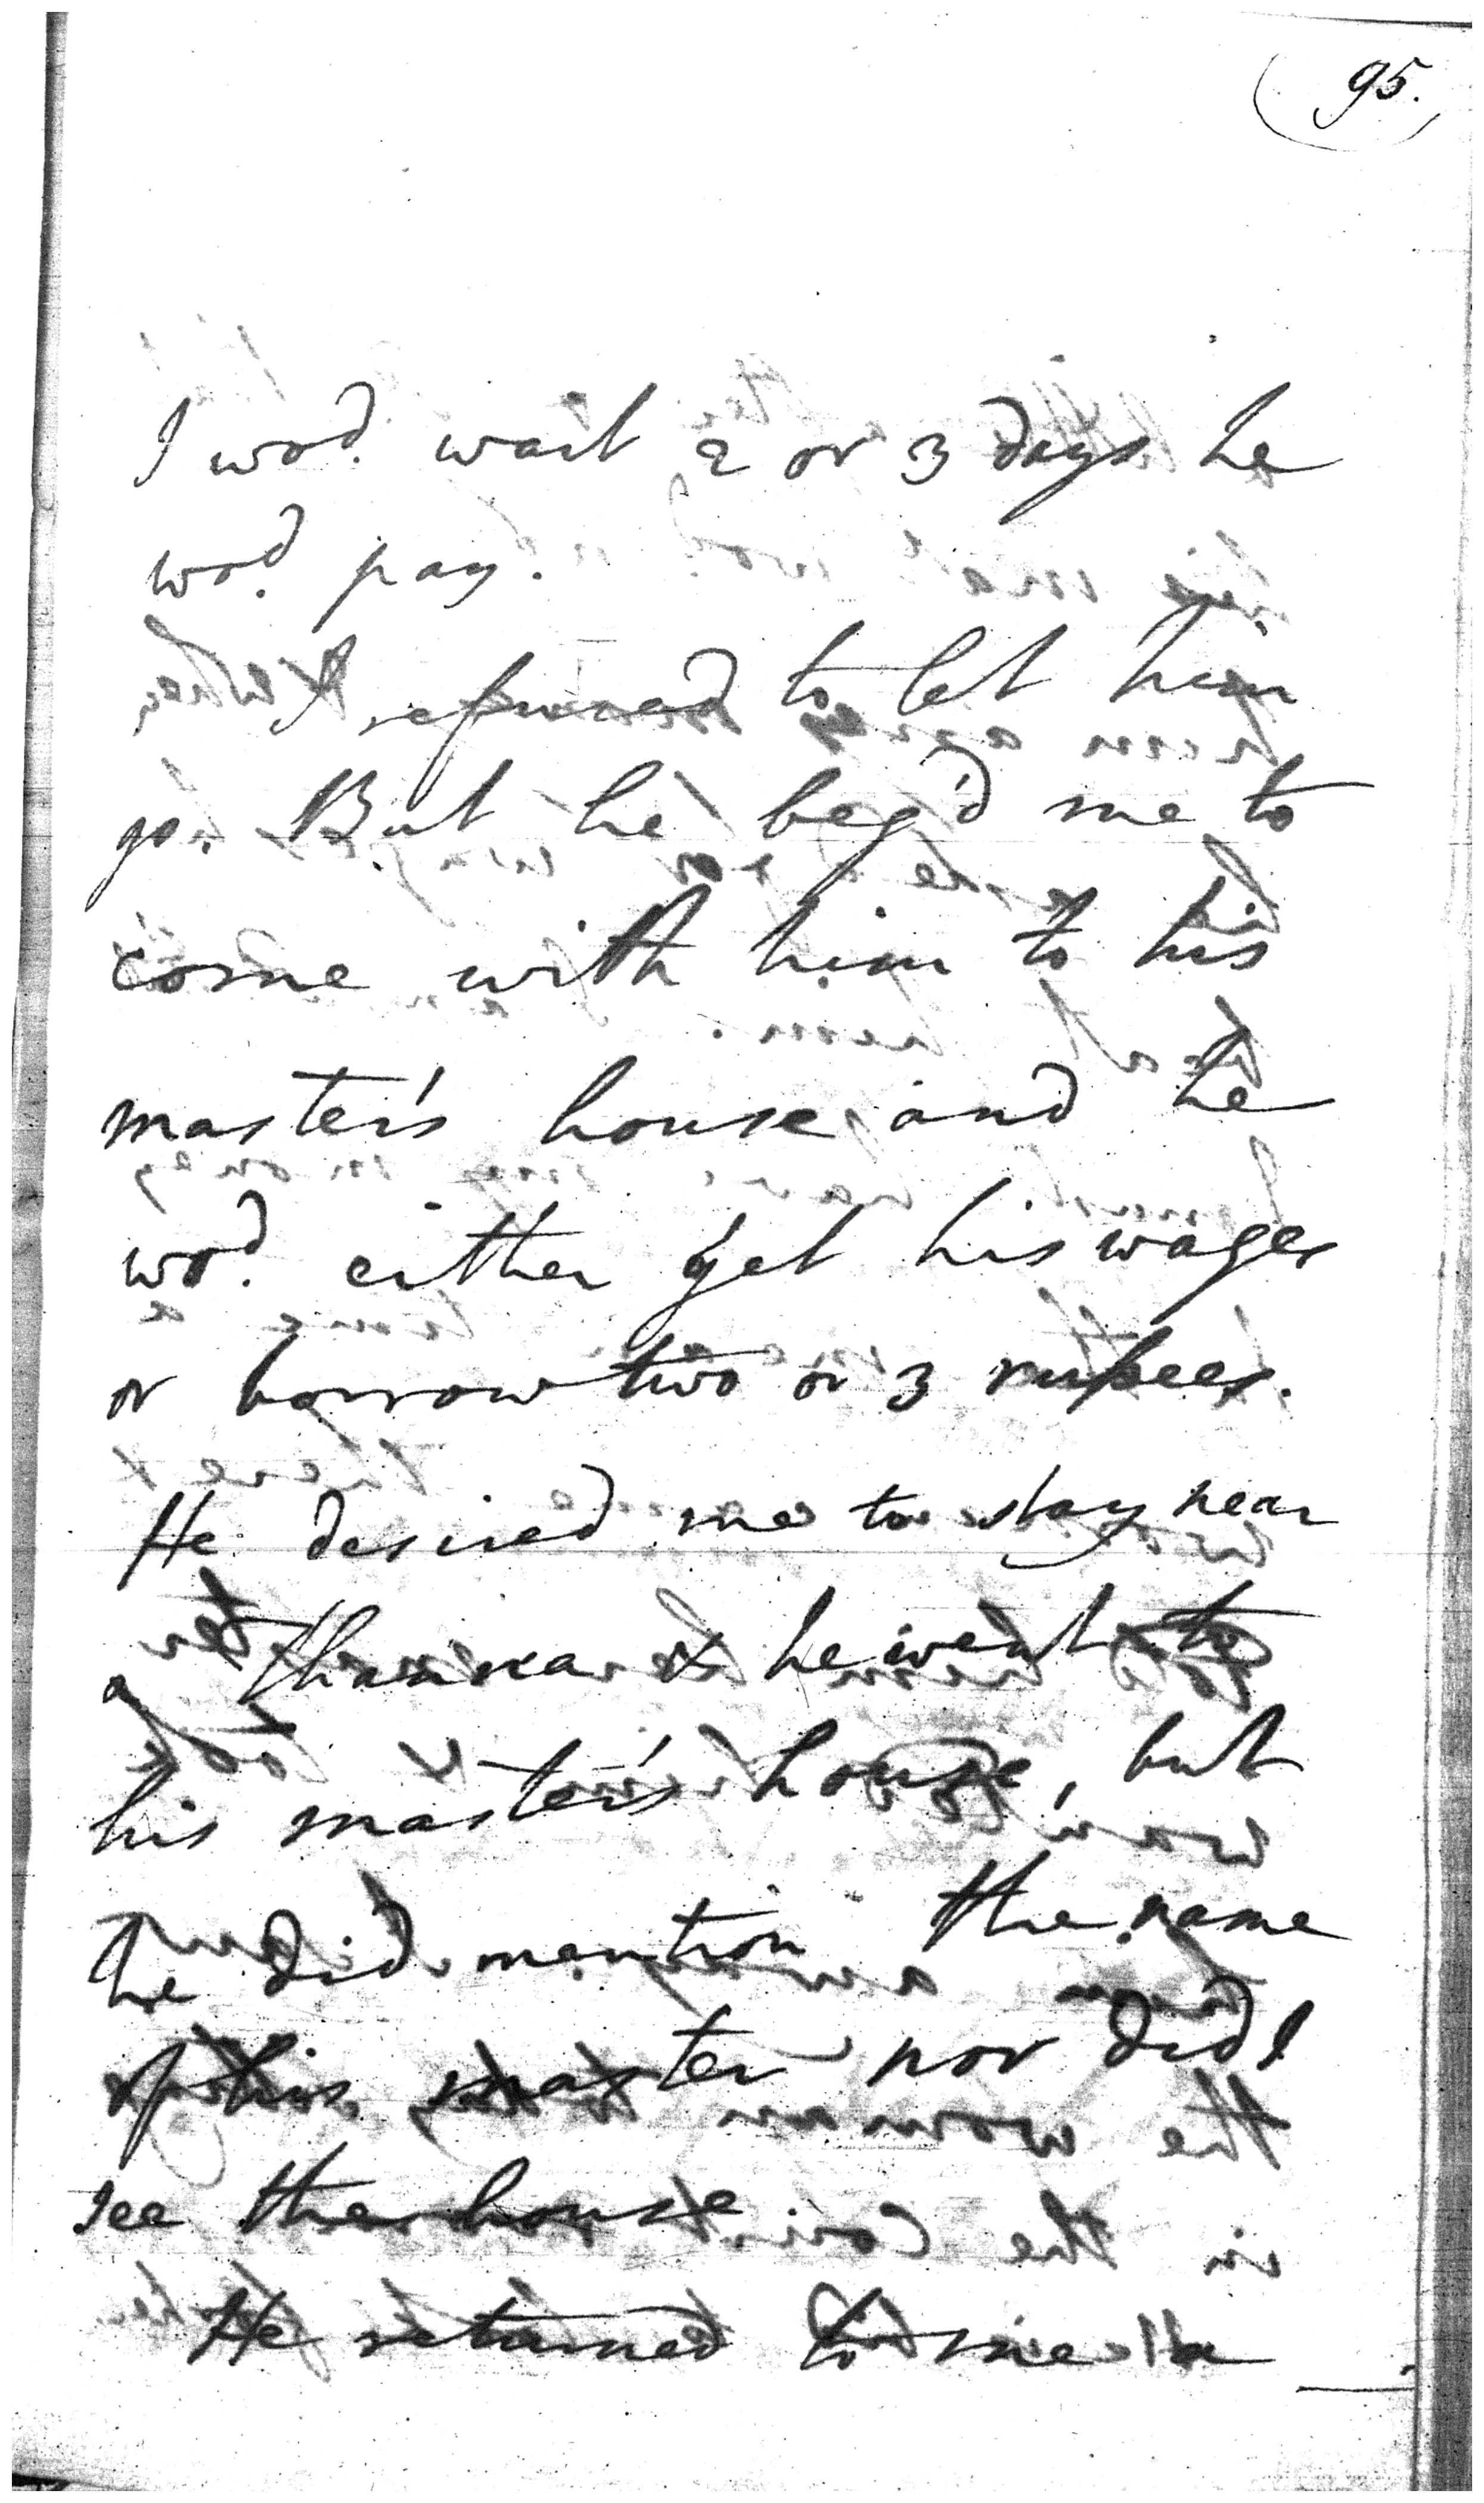 (95.)
I wod. wait 2 or 3 days he
wod. pay.
I refused to let him
go. But he beg'd me to
come with him to his
master's house and he
wod. either get his wages
or borrow two or 3 rupees.
He desired me to stay near
a thanna & he went to
his master's house, but
he did mention the name
of his master nor did I
see the house.
He returned to me